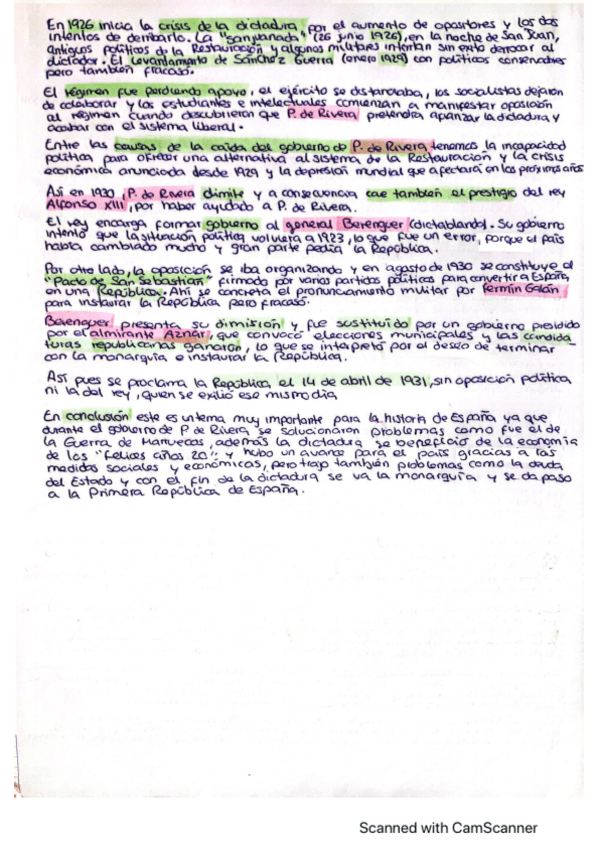 En 1926 inicia la crisis de la dictadura, por el aumento de opositores y los dos
intentos de derribarlo. La "sanjuanada" (26 junio 1926), en la noche de San Juan,
antiguos políticos de la Restauración y algunos militares intentan sin éxito derrocar al
dictador. El Levantamiento de Sánchez Guerra (enero 1929) con políticos conservadores
pero también fracasó.
El régimen fue perdiendo apoyo, el ejército se distanciaba, los socialistas dejaron
de colaborar y los estudiantes e intelectuales comienzan a manifestar oposición
al régimen cuando descubrieron que P. de Rivera pretendía afianzar la dictadura y
acabar con el sistema liberal.
Entre las causas de la caída del gobierno de P. de Rivera tenemos la incapacidad
política para ofrecer una alternativa al sistema de la Restauración y la crisis
económica anunciada desde 1929 y la depresión mundial que afectará en los próximos años
Así en 1930, P. de Rivera dimite y a consecuencia cae también el prestigio del rey
Alfonso XIII, por haber ayudado a P. de Rivera.
El rey encarga formar gobierno al general Berenguer (dictablanda). Su gobierno
intentó que la situación política volviera a 1923, lo que fue un error, porque el país
había cambiado mucho y gran parte pedía la República.
Por otro lado, la oposición se iba organizando y en agosto de 1930 se constituye el
"Pacto de San Sebastián" firmado por varios partidos políticos para convertir a España,
en una República. Ahí se concreta el pronunciamiento militar por Fermín Galán
para instaurar la República pero fracasó.
Berenguer, presenta su dimisión y fue sustituido por un gobierno presidido
por el almirante Aznar, que convocó elecciones municipales y las candida
turas republicanas ganaron, lo que se interpretó por el deseo de terminar
con la monarquía e instaurar la República.
Así pues se proclama la República el 14 de abril de 1931, sin oposición política
ni la del rey, quien se exilió ese mismo día
En conclusión este es un tema muy importante para la historia de España ya que
durante el gobierno de P de Rivera se solucionaron problemas como fue el de
la Guerra de Marruecos, además la dictadura se benefició de la economía
de los "felices años 20" y hubo un avance para el país gracias a las
medidas sociales y económicas, pero trajo también problemas como la deuda
del Estado y con el fin de la dictadura se va la monarquía y se da paso
a la Primera República de España.
Scanned with CamScanner